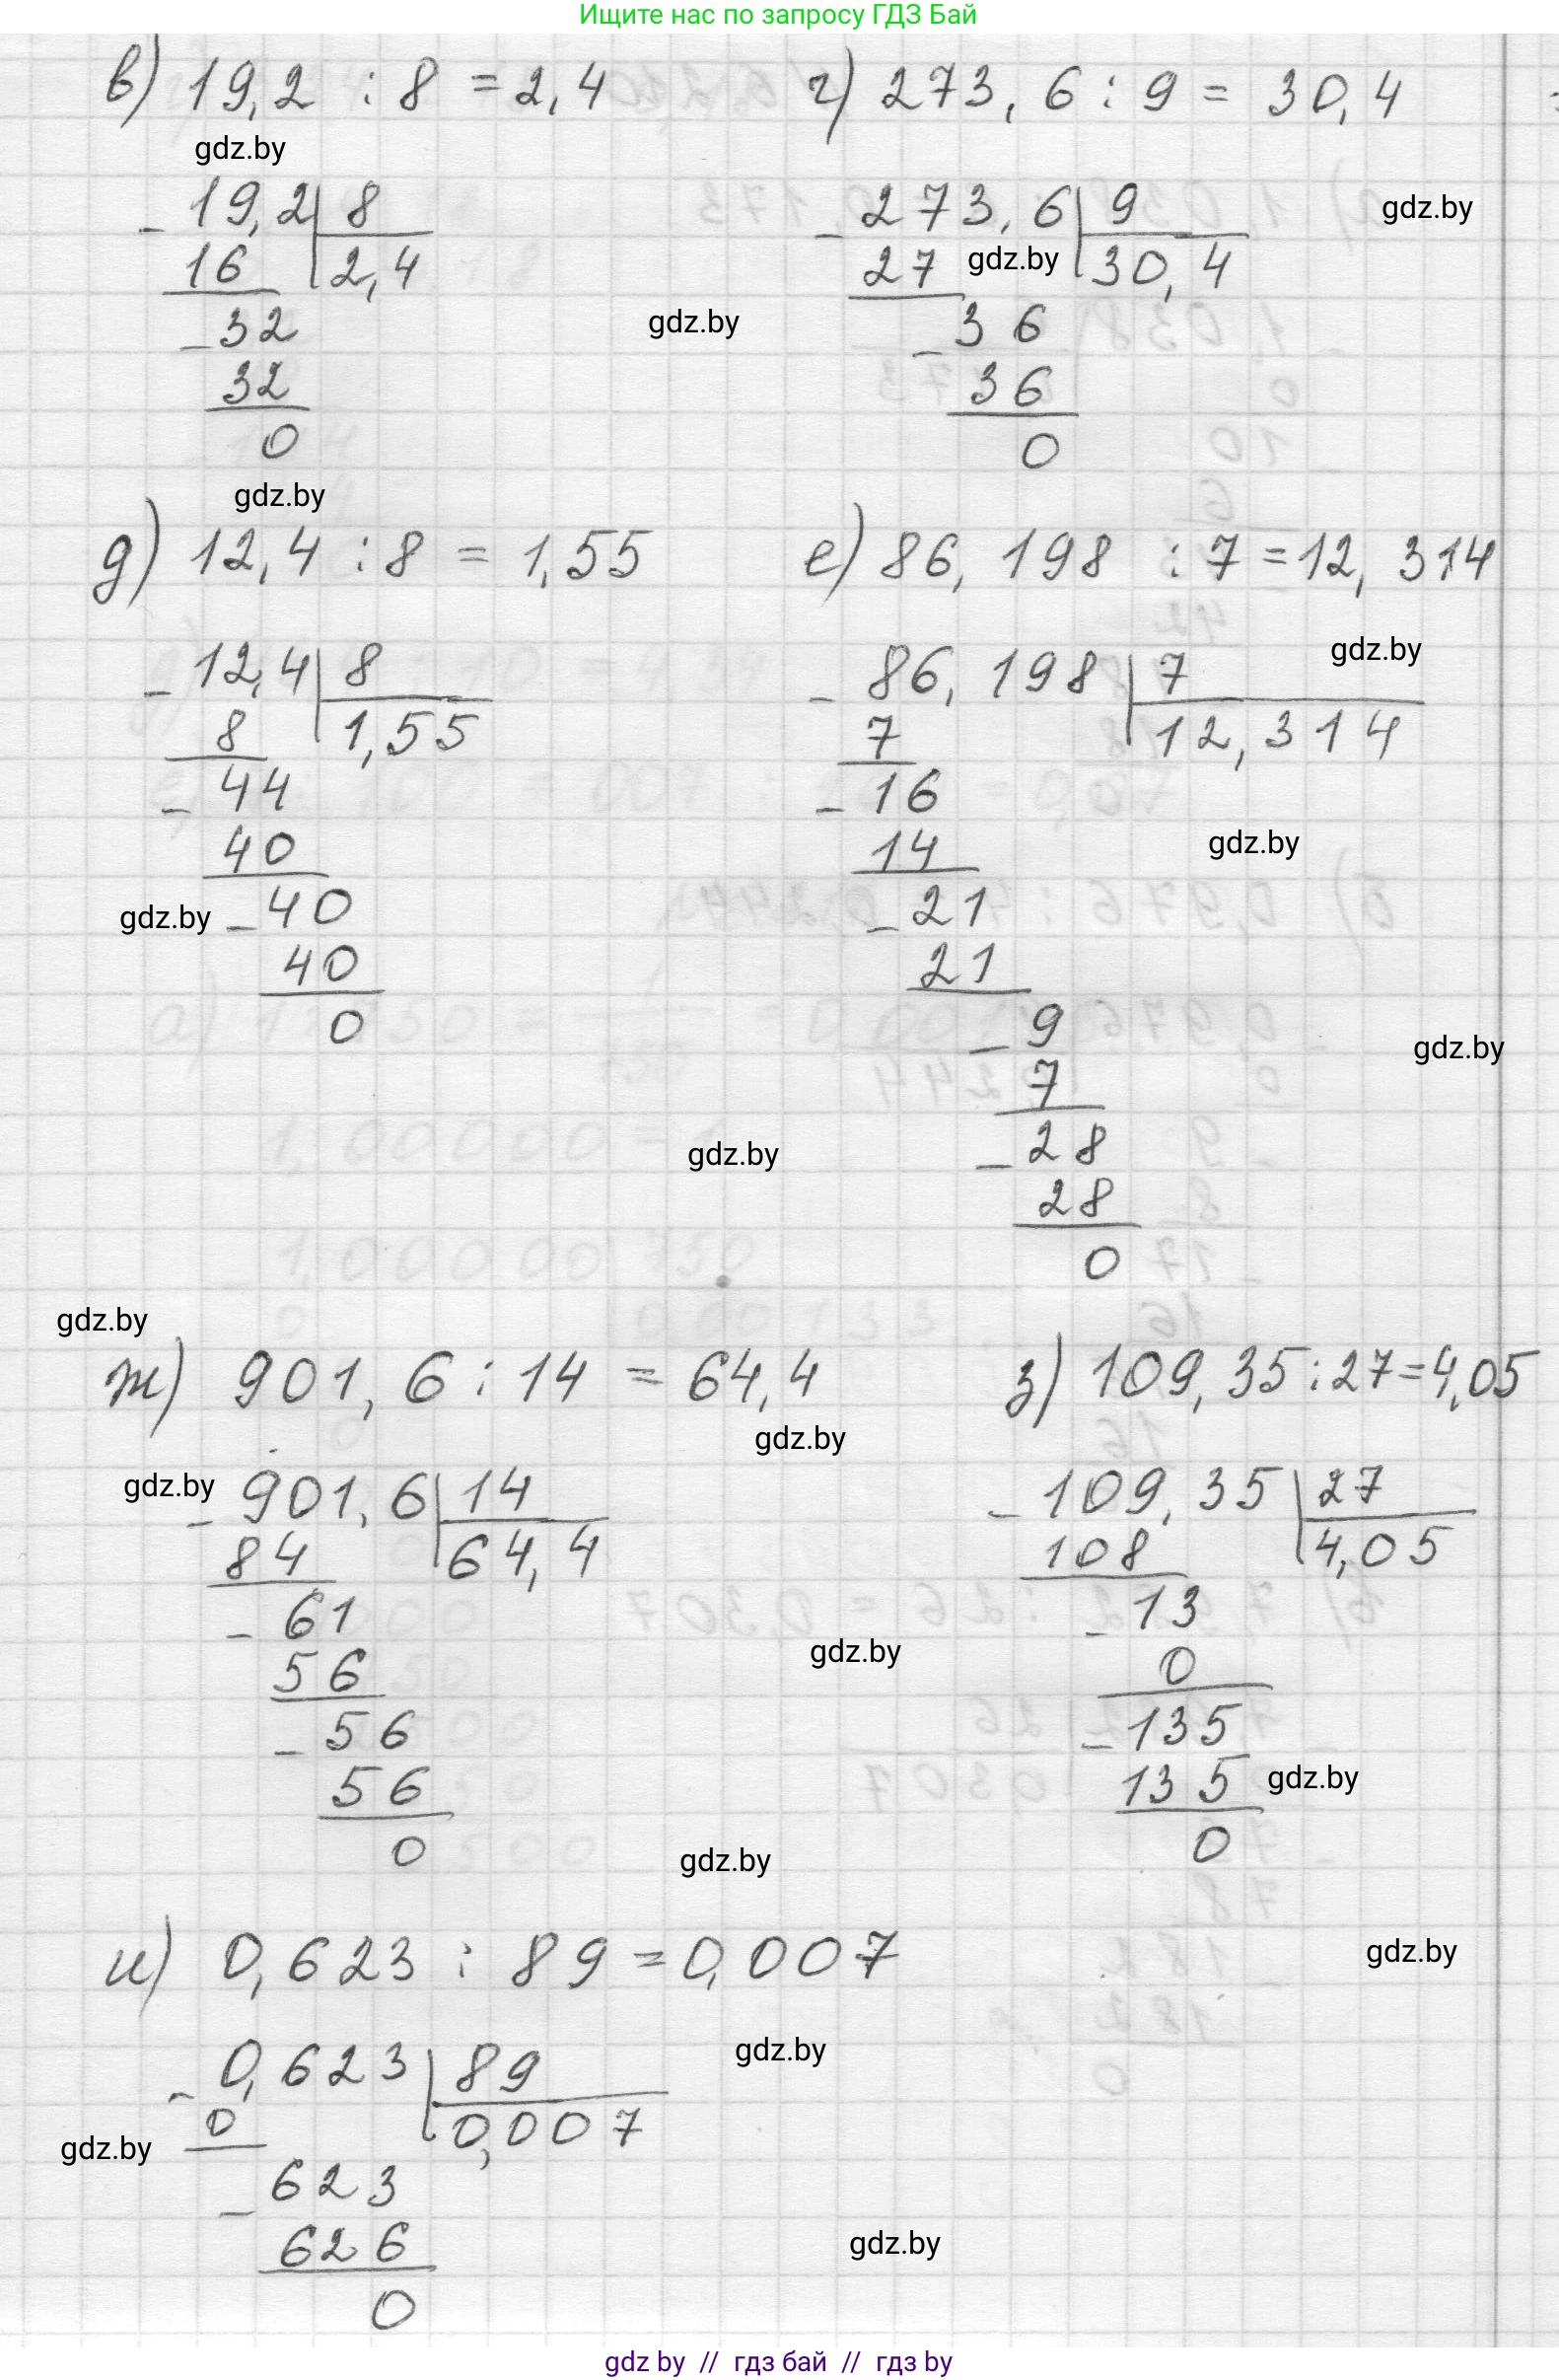 Ищите нас по запросу ГДЗ Бай
в) 19,2 : 8 = 2,4
gdz.by
19,2 8
- 16 2,4
- 32
32
0
г) 273,6 : 9 = 30,4
gdz.by
- 273,6 9
27 gdz.by 30,4
gdz.by
- 36
36
0
gdz.by
д) 12,4 : 8 = 1,55
- 12,4 8
8 1,55
- 44
40
gdz.by - 40
40
0
е) 86,198 : 7 = 12,314
gdz.by
- 86,198 7
7 12,314
- 16
14 gdz.by
- 21
21
- 9
gdz.by
7
gdz.by
- 28
28
0
gdz.by
ж) 901,6 : 14 = 64,4
gdz.by
gdz.by
- 901,6 14
84 64,4
- 61
56
- 56
56
0
з) 109,35 : 27 = 4,05
- 109,35 27
108 4,05
- 13
gdz.by
0
- 135
135 gdz.by
0
gdz.by
и) 0,623 : 89 = 0,007
gdz.by
gdz.by
- 0,623 89
0 0,007
gdz.by
- 623
626
0
gdz.by
gdz by // гдз бай // гдз by